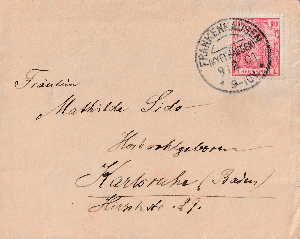 FRANKENHAUSEN
(KYFFHÄUSER)
10
Fräulein
Mathilde Sido
Hochwohlgeboren
Karlsruhe (Baden)
Hirschstr. 29.